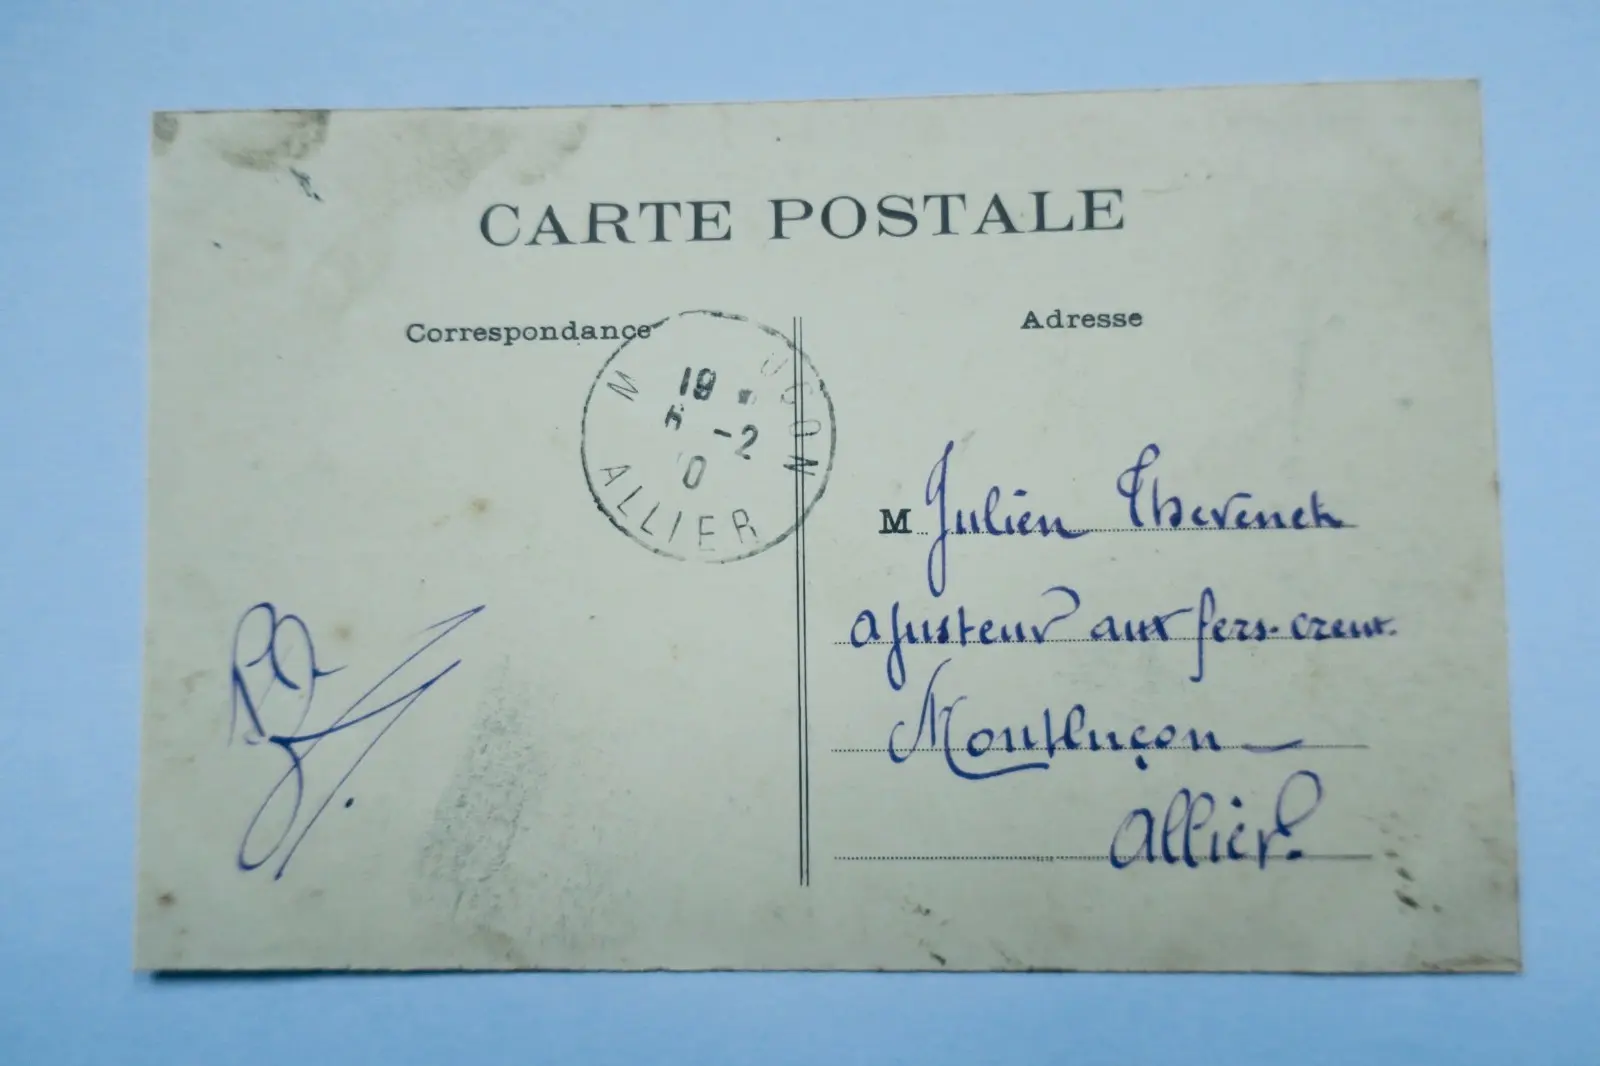 CARTE POSTALE
Correspondance
Adresse
19
-2
ALLIER
M Julien Thevenet
ajusteur aux fers-creux.
Montluçon
Allier.